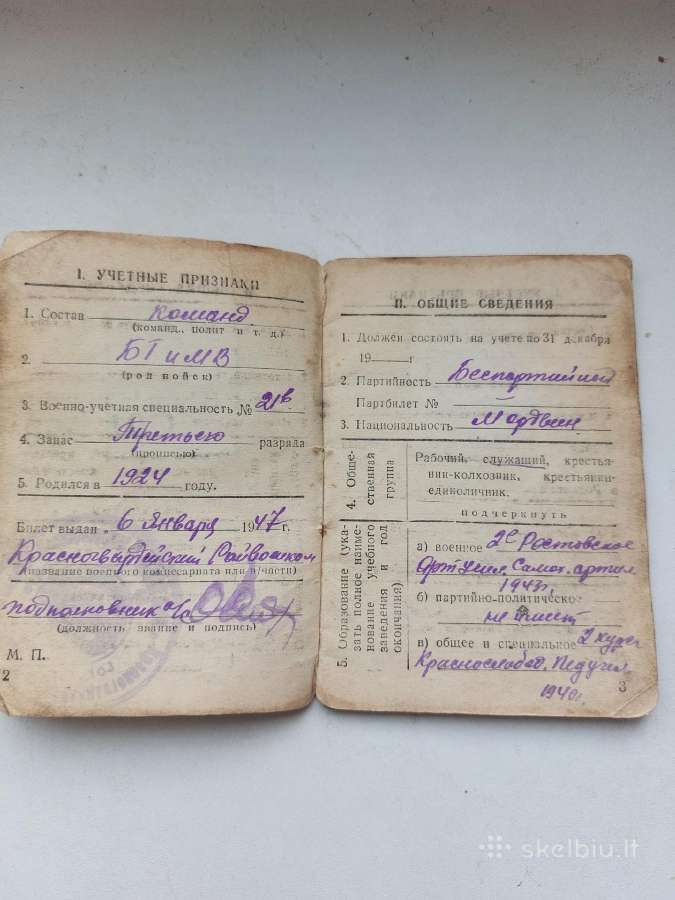 I. УЧЕТНЫЕ ПРИЗНАКИ
1. Состав команд
(команд., полит и т. д.)
2. БТ и МВ
(род войск)
3. Военно-учетная специальность № 21в
4. Запас Третьего разряда
(прописью)
5. Родился в 1924 году.
Билет выдан 6 Января 1947 г.
Красногвардейский Райвоенком
(название военного комиссариата или в/части)
подполковник
(должность, звание и подпись)
М. П.
2
II. ОБЩИЕ СВЕДЕНИЯ
1. Должен состоять на учете по 31 декабря
19 г
2. Партийность Беспартийный
Партбилет №
3. Национальность Мордвин
4. Общественная группа
Рабочий, служащий, крестьянин-колхозник, крестьянин-
единоличник.
подчеркнуть
5. Образование (указать полное наименование учебного заведения и год окончания)
а) военное 2е Ростовское
Арт Учил. Самох. артил
1943г.
б) партийно-политическое
не имеет
в) общее и специальное 2 курса
Краснослобод. Педучил
1940г.
3
skelbiu.lt